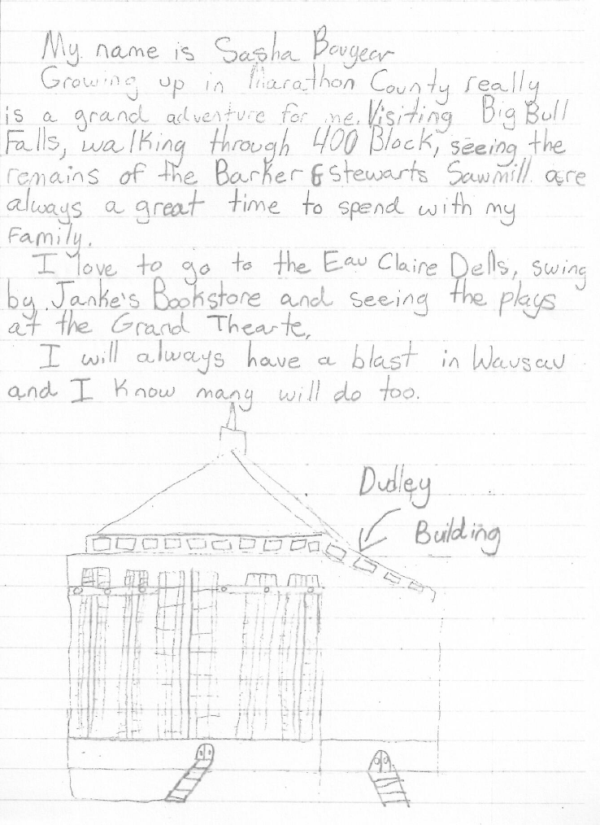 My name is Sasha Bougear
Growing up in Marathon County really
is a grand adventure for me. Visiting Big Bull
Falls, walking through 400 Block, seeing the
remains of the Barker & Stewarts Sawmill are
always a great time to spend with my
Family.
I love to go to the Eau Claire Dells, swing
by Janke's Bookstore and seeing the plays
at the Grand Thearte,
I will always have a blast in Wausau
and I know many will do too.
Dudley
Building